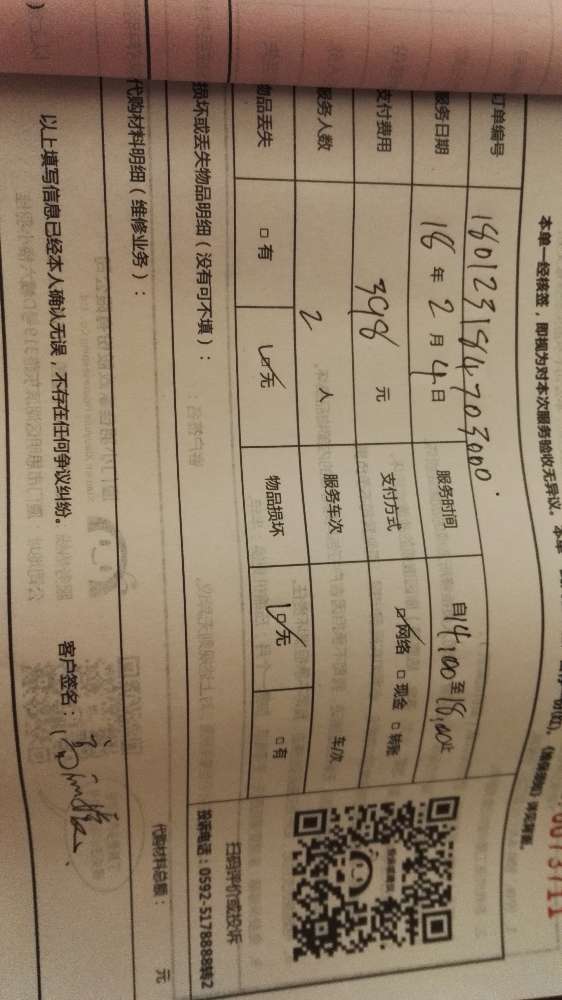 本单一经核签，即视为对本次服务验收无异议。
订单编号 180123184703000
服务日期 18 年 2 月 4 日 服务时间 自 14:00 至 18:00 止
支付费用 398 元 支付方式 ☑网络 □现金 □转账
服务人数 2 人 服务车次 车/次
物品丢失 □有 ☑无 物品损坏 ☑无 □有
扫码评价或投诉
投诉电话：0592-5178888转2
损坏或丢失物品明细（没有可不填）：
代购材料明细（维修业务）：
代购材料总额： 元
以上填写信息已经本人确认无误，不存在任何争议纠纷。 客户签名：